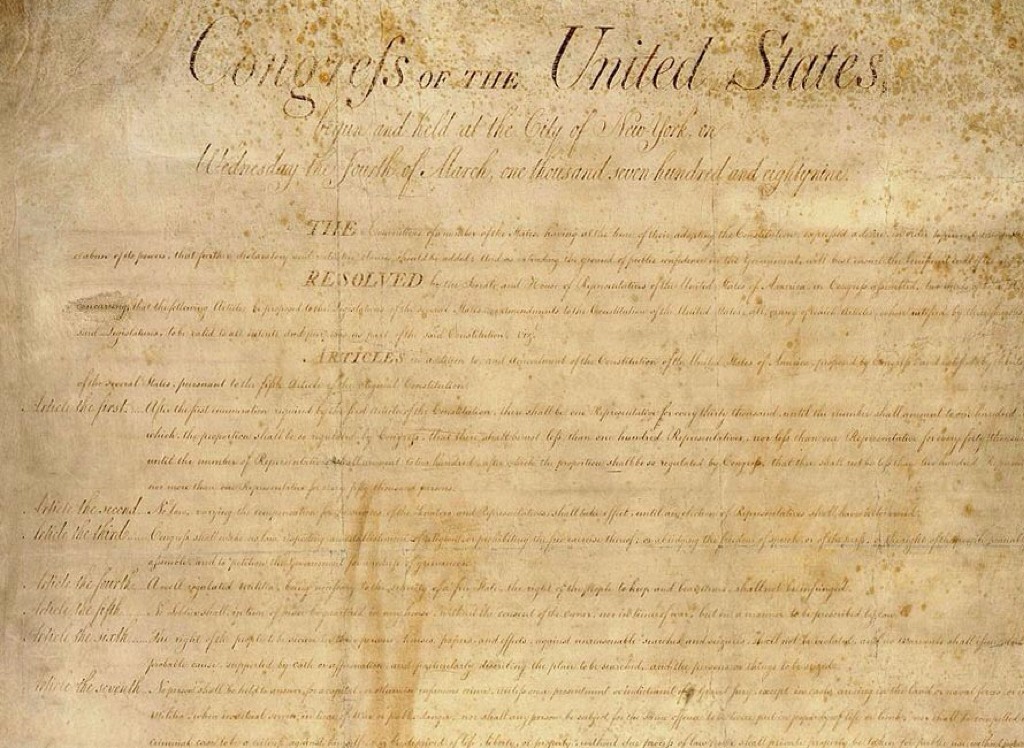 Congress of the United States,
begun and held at the City of New York, on
Wednesday the fourth of March, one thousand seven hundred and eighty nine.
THE Conventions of a number of the States, having at the time of their adopting the Constitution, expressed a desire, in order to prevent
or abuse of its powers, that further declaratory and restrictive clauses should be added: And as extending the ground of public confidence in the Government, will best insure the beneficent ends of
RESOLVED by the Senate and House of Representatives of the United States of America in Congress assembled, two thirds of
concurring, that the following Articles be proposed to the Legislatures of the several States, as amendments to the Constitution of the United States, all, or any of which Articles, when ratified by three fourths of
said Legislatures, to be valid to all intents and purposes, as part of the said Constitution; Viz.
ARTICLES in addition to, and Amendment of the Constitution of the United States of America, proposed by Congress, and ratified by the
of the several States, pursuant to the fifth Article of the original Constitution.
Article the first. After the first enumeration required by the first Article of the Constitution, there shall be one Representative for every thirty thousand, until the number shall amount to one hundred,
which, the proportion shall be so regulated by Congress, that there shall be not less than one hundred Representatives, nor less than one Representative for every forty
until the number of Representatives shall amount to two hundred, after which the proportion shall be so regulated by Congress, that there shall not be less than two hundred
nor more than one Representative for every fifty thousand persons.
Article the second. No law, varying the compensation for the services of the Senators and Representatives, shall take effect, until an election of Representatives shall have intervened.
Article the third. Congress shall make no law respecting an establishment of religion, or prohibiting the free exercise thereof; or abridging the freedom of speech, or of the press; or the right of the people
assemble, and to petition the Government for a redress of grievances.
Article the fourth. A well regulated Militia, being necessary to the security of a free State, the right of the People to keep and bear Arms, shall not be infringed.
Article the fifth. No Soldier shall, in time of peace be quartered in any house, without the consent of the Owner, nor in time of war, but in a manner to be prescribed by law.
Article the sixth. The right of the people to be secure in their persons, houses, papers, and effects, against unreasonable searches and seizures, shall not be violated, and no Warrants shall
probable cause, supported by Oath or affirmation, and particularly describing the place to be searched, and the persons or things to be seized.
Article the seventh. No person shall be held to answer for a capital, or otherwise infamous crime, unless on a presentment or indictment of a Grand Jury, except in cases arising in the land or naval forces, or
Militia, when in actual service in time of War or public danger; nor shall any person be subject for the same offence to be twice put in jeopardy of life or limb; nor shall be compelled
criminal case to be a witness against himself, nor be deprived of life, liberty, or property, without due process of law; nor shall private property be taken for public use without